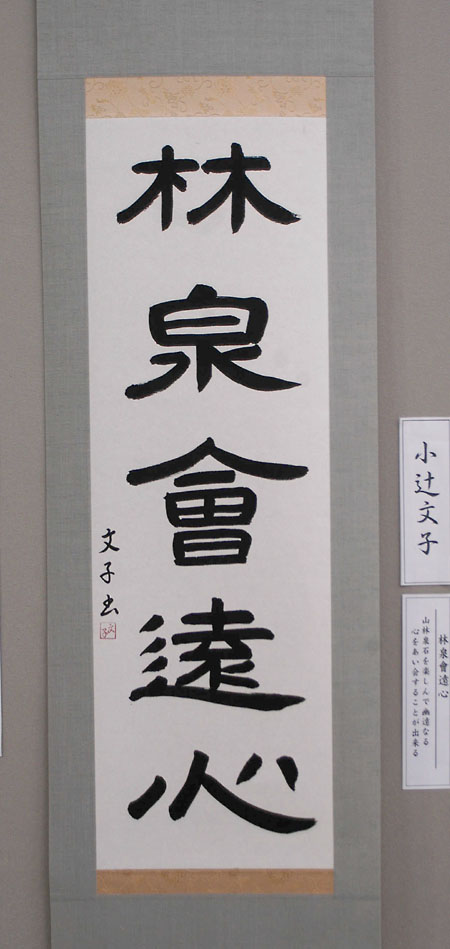 林泉會遠心
文子書
小辻文子
林泉會遠心
山林泉石を楽しんで幽遠なる
心をあい会することが出来る